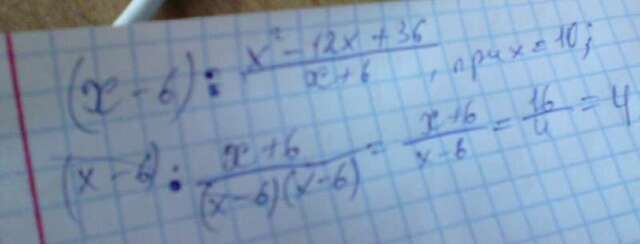 (x - 6) : \frac{x² - 12x + 36}{x + 6}, при x = 10;
(x - 6) : \frac{x + 6}{(x - 6)(x - 6)} = \frac{x + 6}{x - 6} = \frac{16}{4} = 4